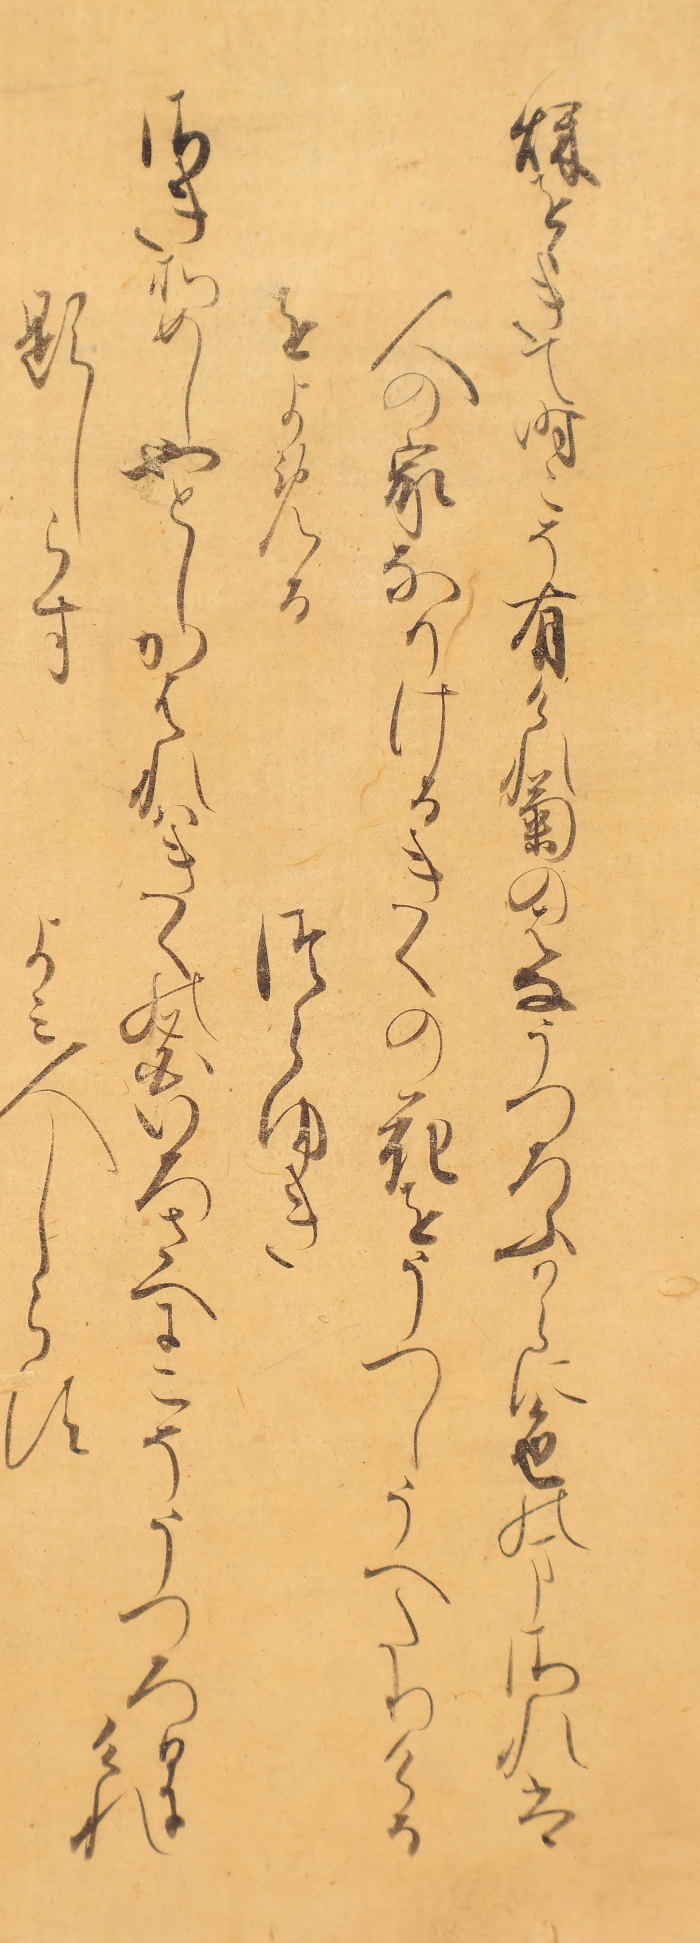 秋をきて時こそ有けれ菊の花うつろふからに色のまされは
人の家なりけるきくの花をうつしうへたりける
をよめる　つらゆき
さきそめしやとしかはれはきくの花いろさへにこそうつろひにけれ
題しらす　よみ人しらす